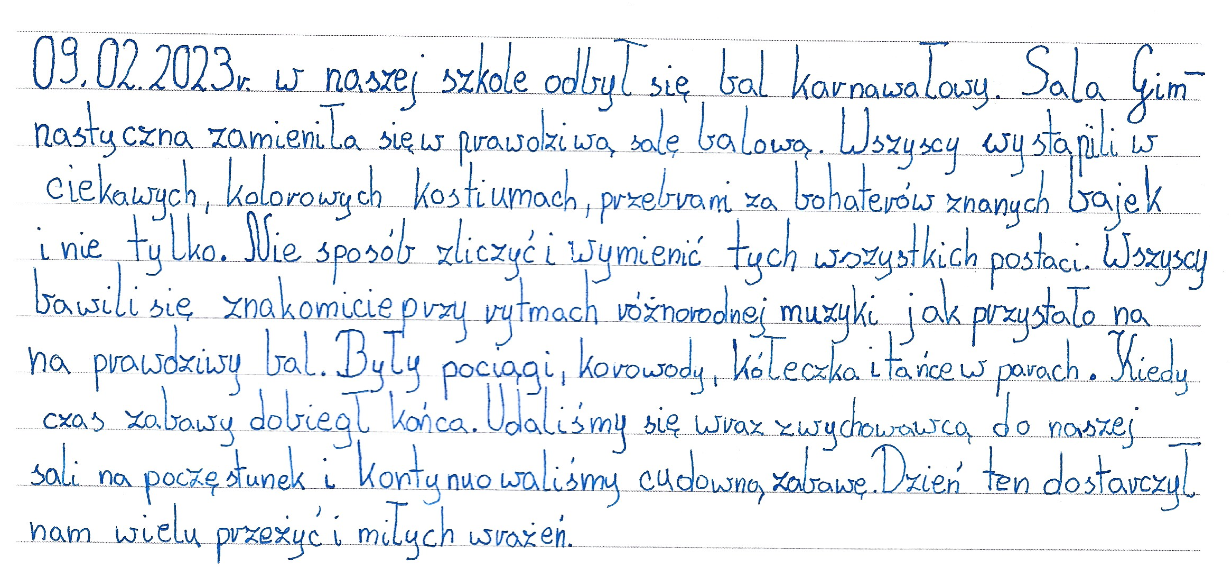 09.02.2023r. w naszej szkole odbył się bal karnawałowy. Sala Gim-
nastyczna zamieniła się w prawdziwą salę balową. Wszyscy wystąpili w
ciekawych, kolorowych kostiumach, przebrani za bohaterów znanych bajek
i nie tylko. Nie sposób zliczyć i wymienić tych wszystkich postaci. Wszyscy
bawili się znakomicie przy rytmach różnorodnej muzyki jak przystało na
na prawdziwy bal. Były pociągi, korowody, kółeczka i tańce w parach. Kiedy
czas zabawy dobiegł końca. Udaliśmy się wraz z wychowawcą do naszej
sali na poczęstunek i kontynuowaliśmy cudowną zabawę. Dzień ten dostarczył
nam wielu przeżyć i miłych wrażeń.